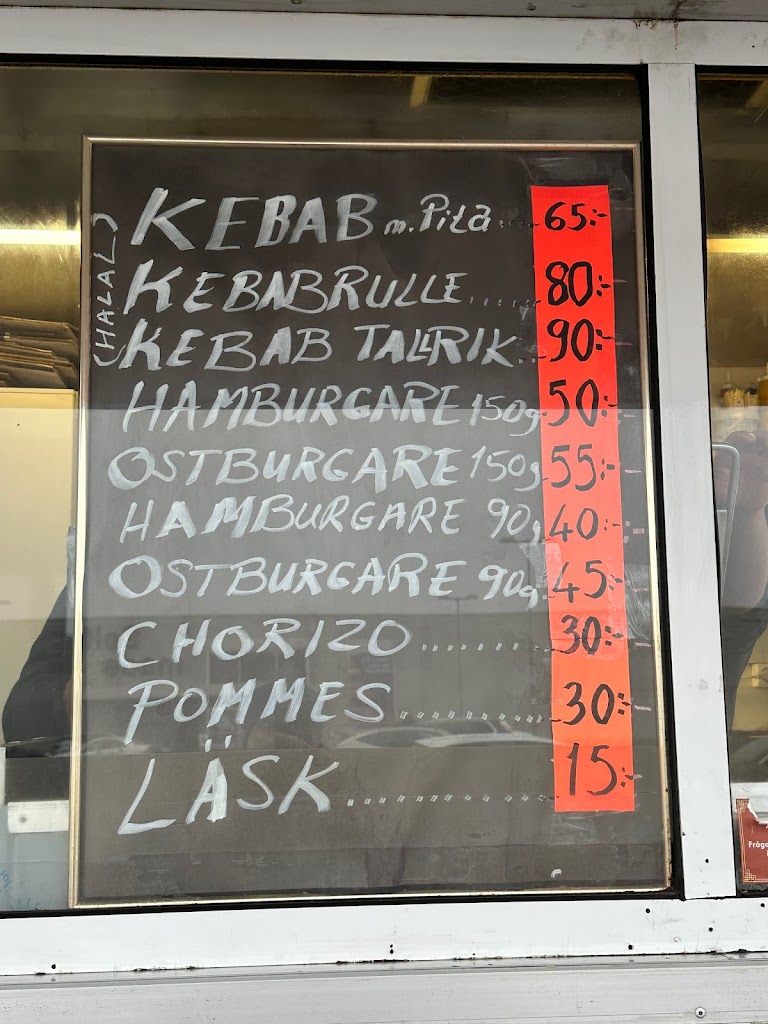 (HALAL)
KEBAB m. Pita... 65:-
KEBABRULLE...... 80:-
KEBAB TALLRIK... 90:-
HAMBURGARE 150g 50:-
OSTBURGARE 150g 55:-
HAMBURGARE 90g 40:-
OSTBURGARE 90g 45:-
CHORIZO........ 30:-
POMMES........... 30:-
LÄSK............... 15:-